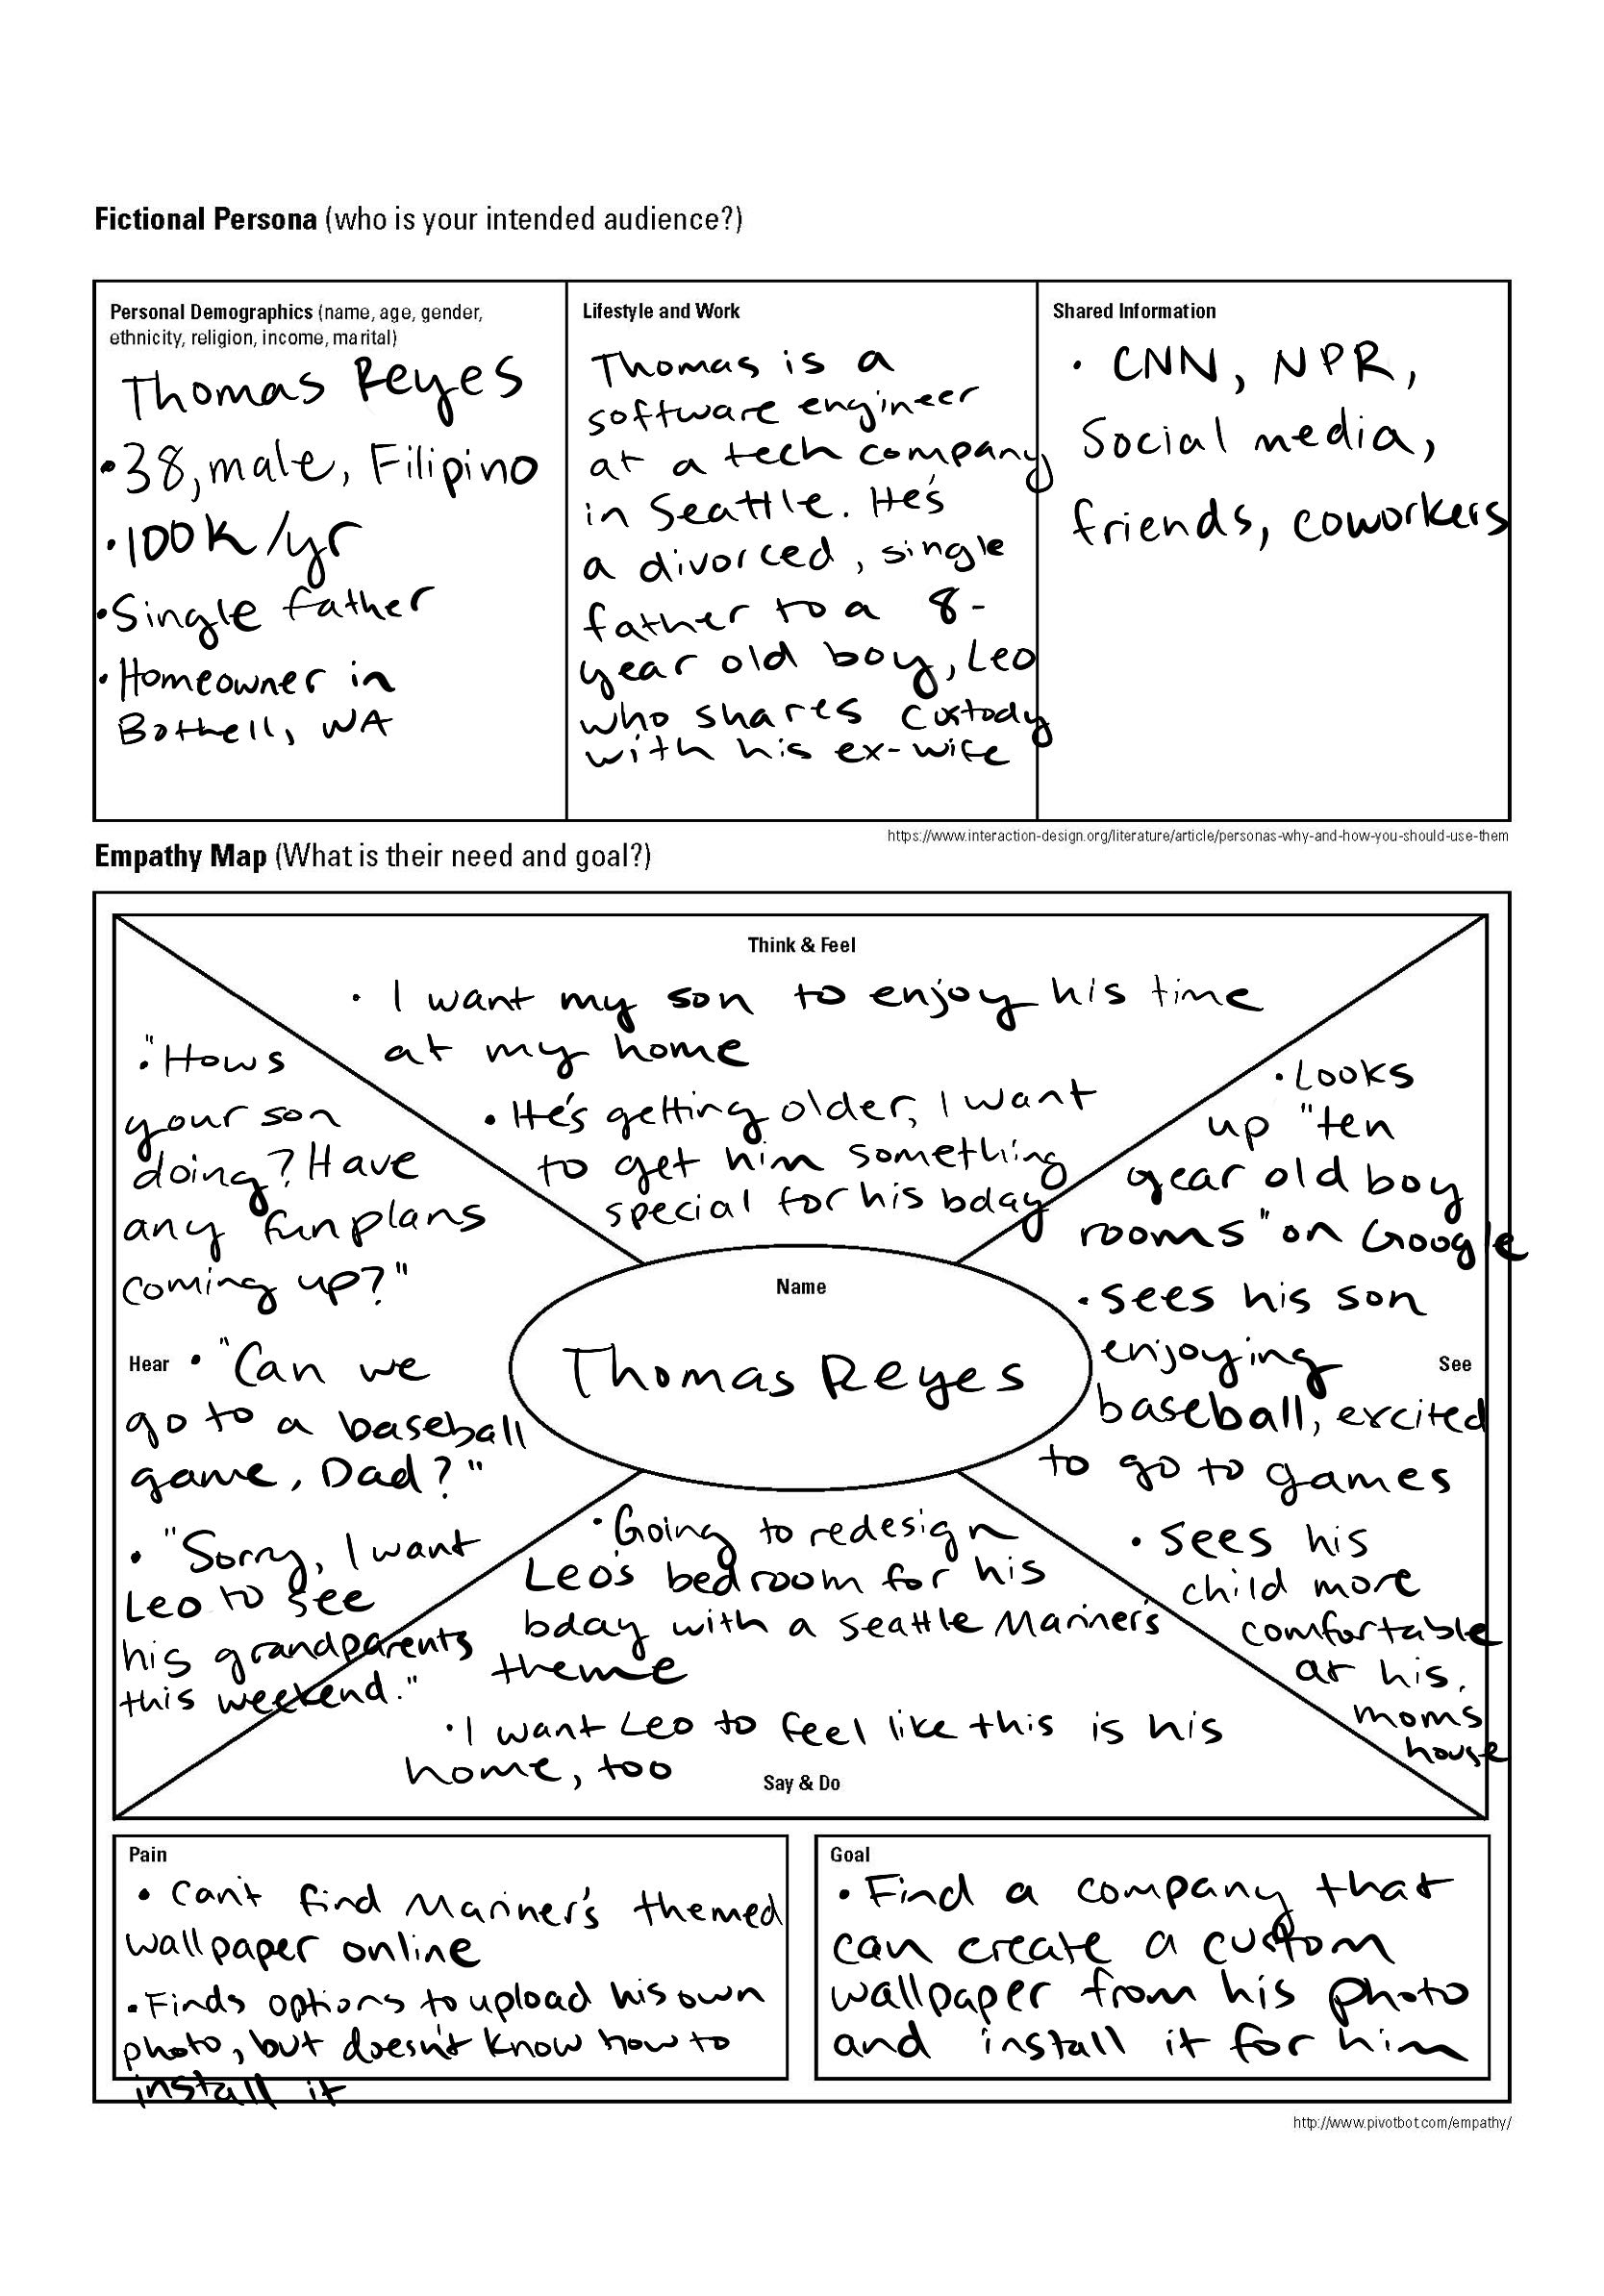 Fictional Persona (who is your intended audience?)
Personal Demographics (name, age, gender,
ethnicity, religion, income, marital)
Thomas Reyes
•38, male, Filipino
•100K/yr
•Single father
•Homeowner in
Bothell, WA
Lifestyle and Work
Thomas is a
software engineer
at a tech company
in Seattle. He's
a divorced, single
father to a 8-
year old boy, Leo
who shares custody
with his ex-wife
Shared Information
• CNN, NPR,
Social media,
friends, coworkers
https://www.interaction-design.org/literature/article/personas-why-and-how-you-should-use-them
Empathy Map (What is their need and goal?)
Think & Feel
• I want my son to enjoy his time
at my home
• He's getting older, I want
to get him something
special for his bday
•"Hows
your son
doing? Have
any fun plans
coming up?"
Hear
• "Can we
go to a baseball
game, Dad?"
• "Sorry, I want
Leo to see
his grandparents
this weekend."
Name
Thomas Reyes
• Looks
up "ten
year old boy
rooms" on Google
• sees his son
enjoying
See
baseball, excited
to go to games
• sees his
child more
comfortable
at his.
moms
house
• Going to redesign
Leo's bedroom for his
bday with a Seattle Mariner's
theme
• I want Leo to feel like this is his
home, too
Say & Do
Pain
• Can't find Mariner's themed
wallpaper online
• Finds options to upload his own
photo, but doesn't know how to
install it
Goal
• Find a company that
can create a custom
wallpaper from his photo
and install it for him
http://www.pivotbot.com/empathy/